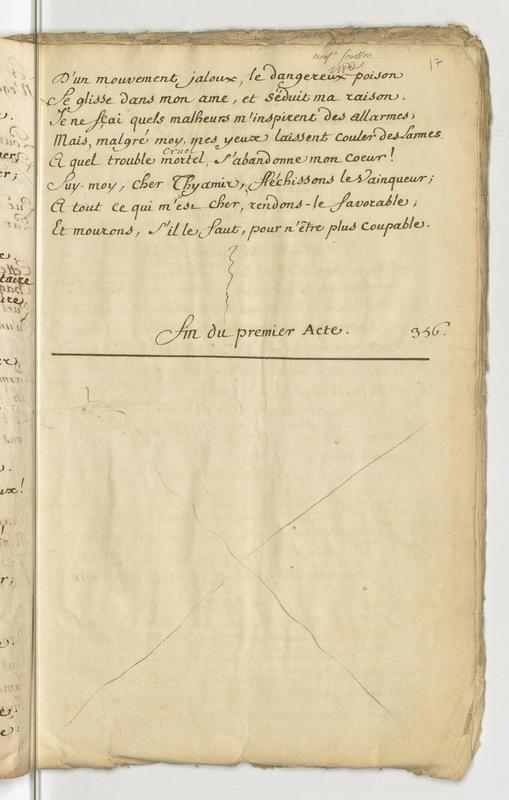 neuf feuillets
17
D'un mouvement jaloux, le dangereux poison
Se glisse dans mon ame, et séduit ma raison.
Je ne sçai quels malheurs m'inspirent des allarmes;
Mais, malgré moy, mes yeux laissent couler des larmes.
cruel
A quel trouble mortel, s'abandonne mon coeur!
Suy-moy, cher Thyamir, fléchissons le vainqueur;
A tout ce qui m'est cher, rendons-le favorable;
Et mourons, s'il le faut, pour n'être plus coupable.
fin du premier Acte. 356.